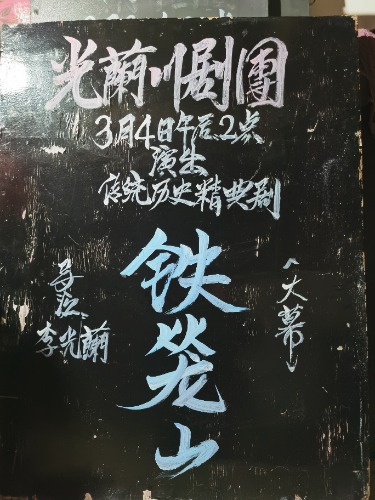 光蘭川剧團
3月4日午后2点
演出
传统历史精典剧
铁笼山
(大幕)
导演
李光蘭